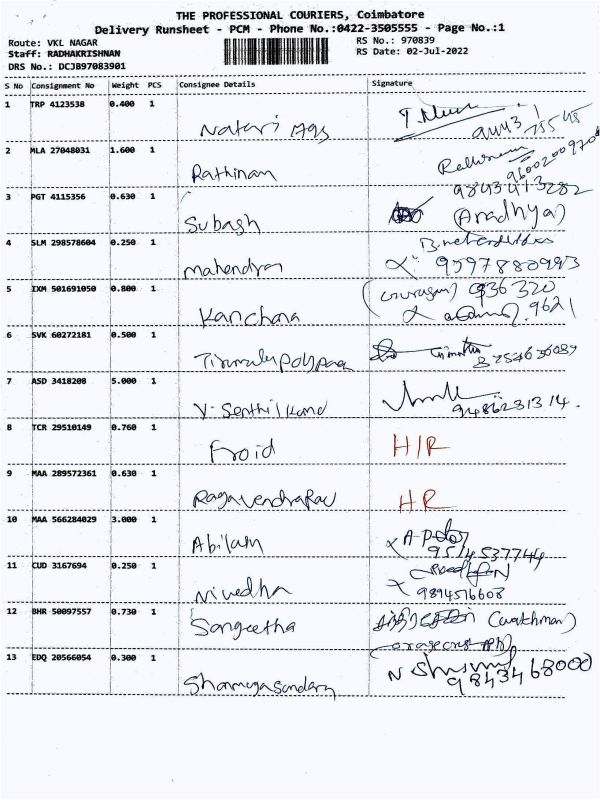 THE PROFESSIONAL COURIERS, Coimbatore
Delivery Runsheet - PCM - Phone No.:0422-3505555 - Page No.:1
Route: VKL NAGAR
Staff: RADHAKRISHNAN
DRS No.: DCJB97083901
RS No.: 970839
RS Date: 02-Jul-2022
S No Consignment No Weight PCS Consignee Details Signature
1 TRP 4123538 0.400 1
2 MLA 27048031 1.600 1 Rathinam
9843413282
3 PGT 4115356 0.630 1 Subash (Aradhya)
4 SLM 298578604 0.250 1 Mahendran
9597880993
5 IXM 501691050 0.800 1 Kanchana
936320
9621
6 SVK 60272181 0.500 1
7 ASD 3418208 5.000 1 V. Senthil
9486231314.
8 TCR 29510149 0.760 1 Froid H/R
9 MAA 289572361 0.630 1 RagavendraRao HR
10 MAA 566284029 3.000 1 Abilam
9514537744
11 CUD 3167694 0.250 1 Nivedha
9894516608
12 BHR 50097557 0.730 1 Sangeetha (watchman)
13 EDQ 20566054 0.300 1 Shanmugasundaram
9843468000